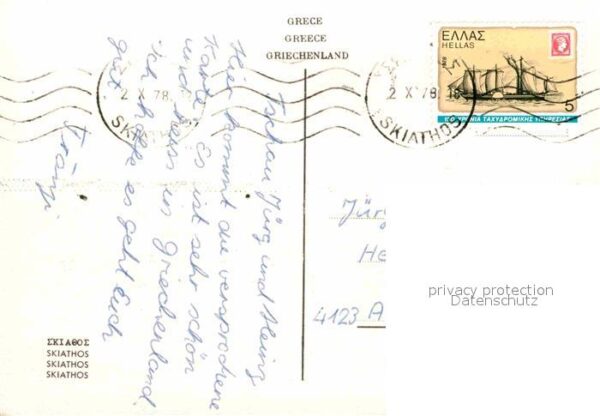 GRECE
GREECE
GRIECHENLAND
ΕΛΛΑΣ
HELLAS
5
150 ΧΡΟΝΙΑ ΤΑΧΥΔΡΟΜΙΚΗΣ ΥΠΗΡΕΣΙΑΣ
2 X 78
SKIATHOS
2 X 78 15
SKIATHOS
Tschau Jürg und Heinz
Hier kommt die versprochene
Karte. Es ist sehr schön
und heiss in Griechenland.
Ich hoffe es geht Euch
gut
Fränzi
Jürg
He
4123 A
privacy protection
Datenschutz
ΣΚΙΑΘΟΣ
SKIATHOS
SKIATHOS
SKIATHOS